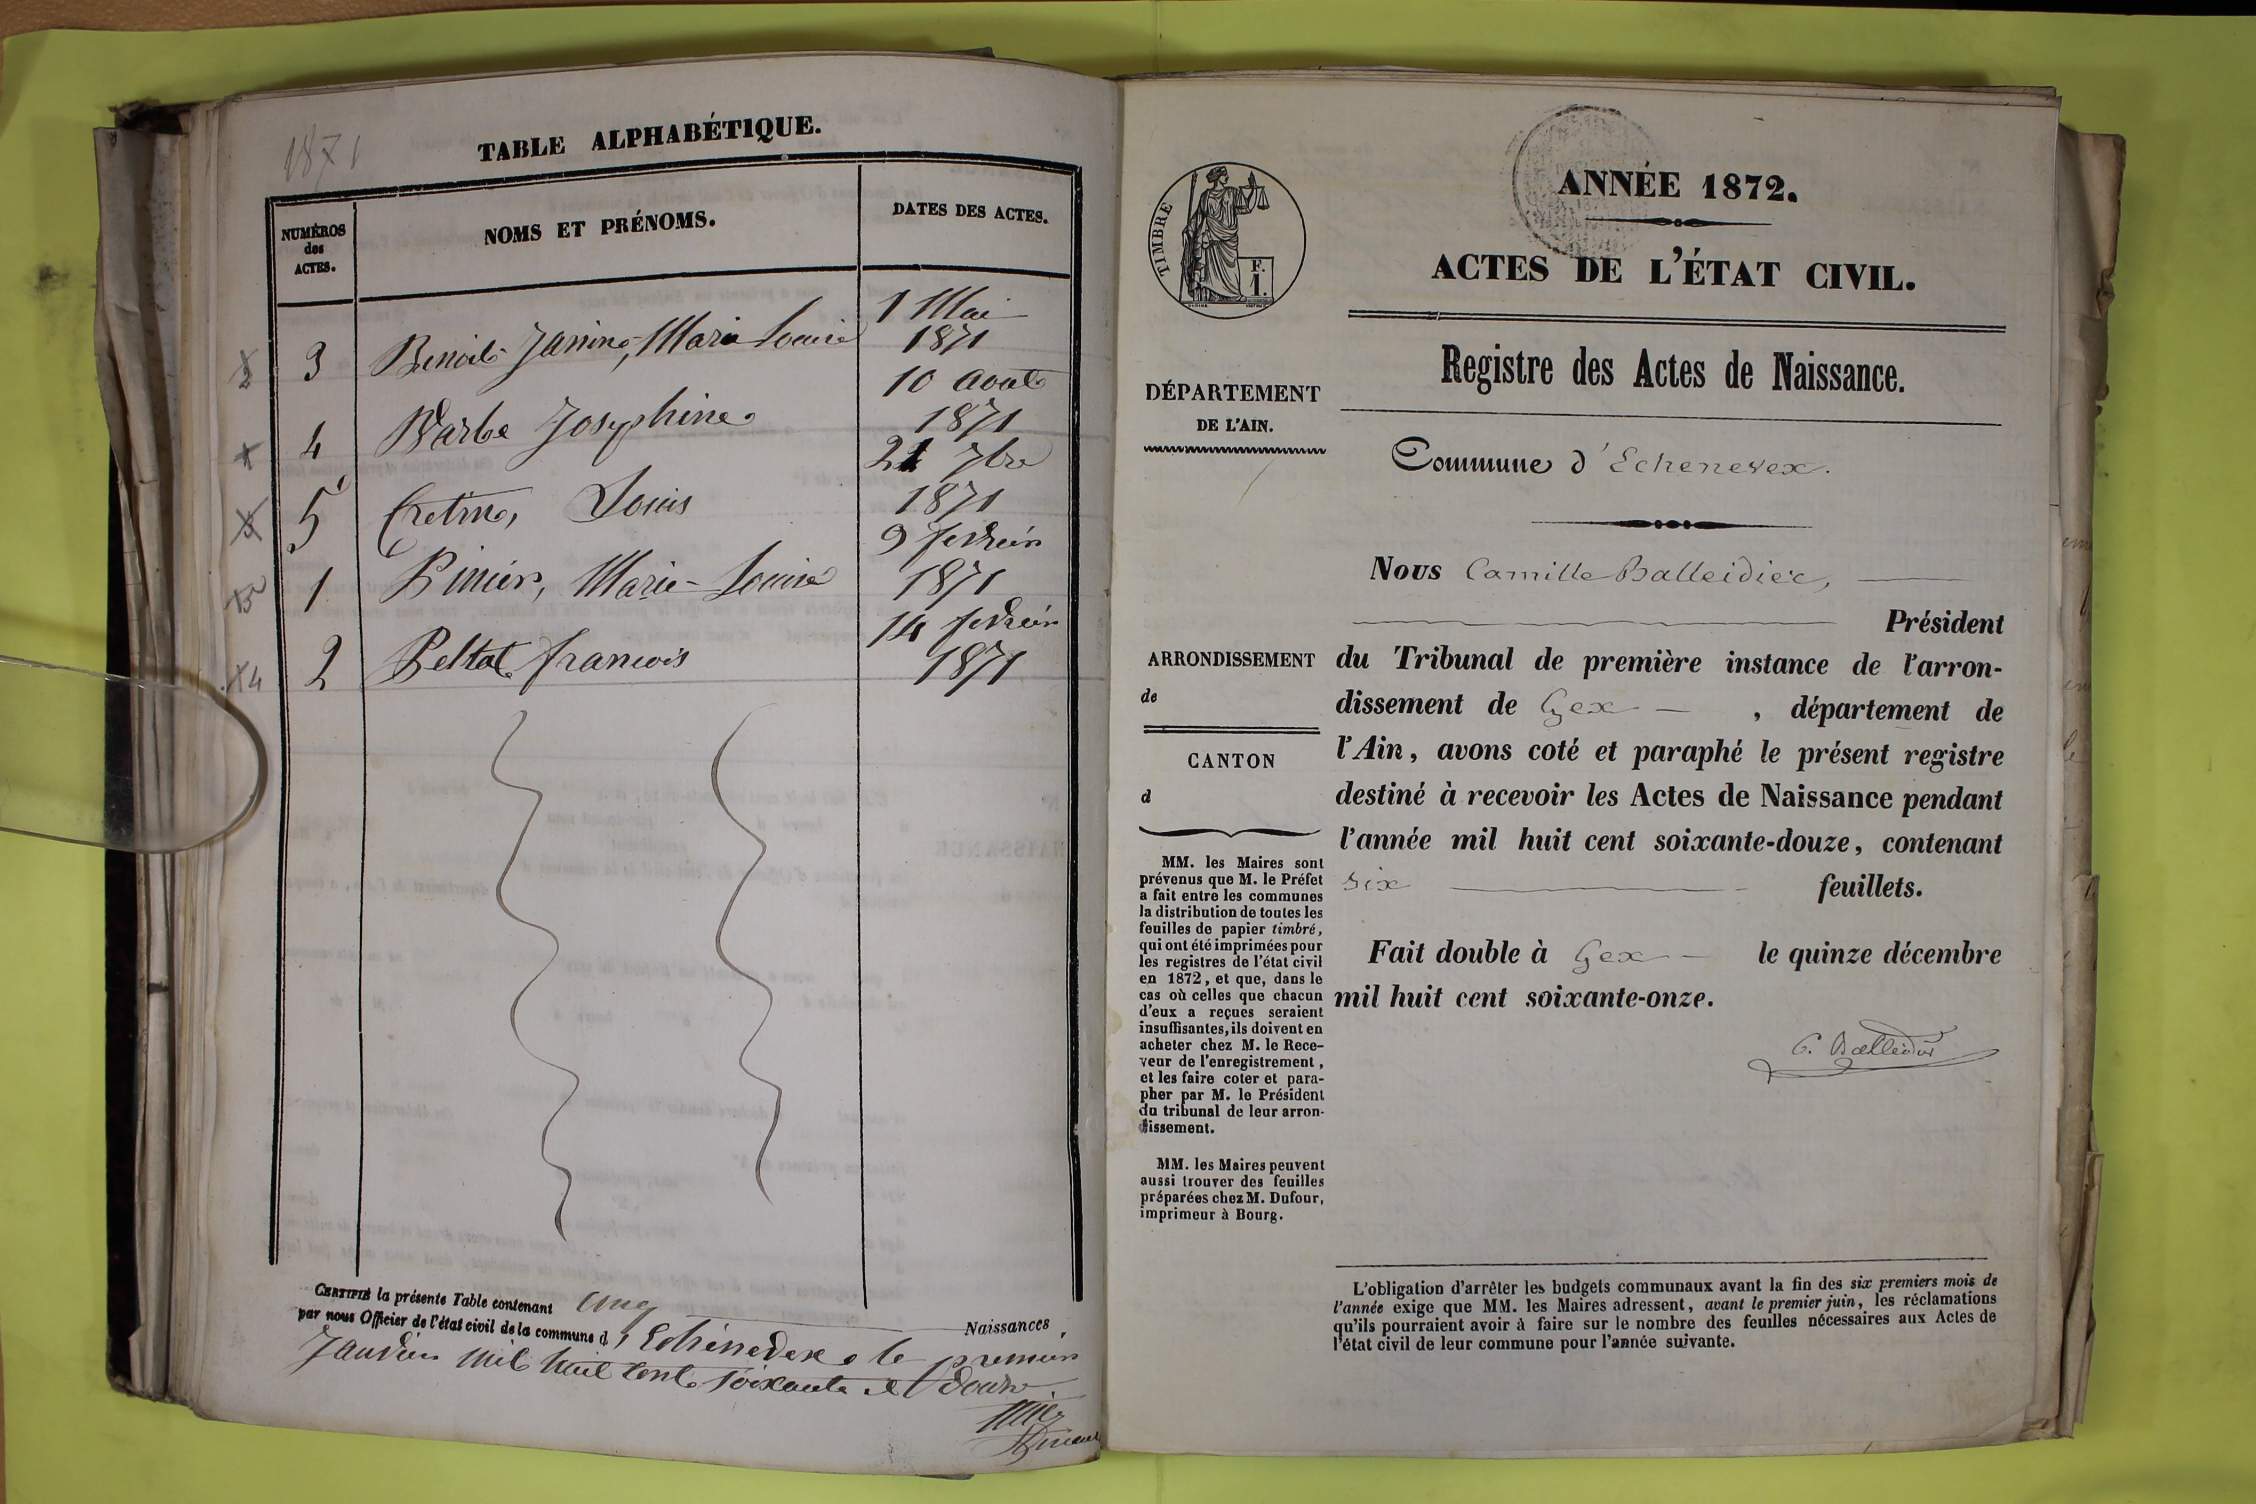 1871
TABLE ALPHABÉTIQUE.
NUMÉROS
des
ACTES.
NOMS ET PRÉNOMS.
DATES DES ACTES.
1 Mai
3 Benoit Janine, Marie Louise 1871
10 Aout
4 Barbe Josephine 1871
21 7bre
5 Cretin, Louis 1871
9 fevrier
1 Marie-Louise 1871
14 fevrier
2 Peltat francois 1871
CERTIFIÉ la présente Table contenant cinq Naissances,
par nous Officier de l'état civil de la commune d'Echenevex le premier
Janvier mil huit cent soixante et douze.
TIMBRE
F.
1.
ANNÉE 1872.
ACTES DE L'ÉTAT CIVIL.
Registre des Actes de Naissance.
DÉPARTEMENT
DE L'AIN.
Commune d'Echenevex.
Nous Camille Balleidier,
Président
ARRONDISSEMENT
de
CANTON
d
du Tribunal de première instance de l'arron-
dissement de Gex, département de
l'Ain, avons coté et paraphé le présent registre
destiné à recevoir les Actes de Naissance pendant
l'année mil huit cent soixante-douze, contenant
six feuillets.
Fait double à Gex le quinze décembre
mil huit cent soixante-onze.
C. Balleidier
MM. les Maires sont
prévenus que M. le Préfet
a fait entre les communes
la distribution de toutes les
feuilles de papier timbré,
qui ont été imprimées pour
les registres de l'état civil
en 1872, et que, dans le
cas où celles que chacun
d'eux a reçues seraient
insuffisantes, ils doivent en
acheter chez M. le Rece-
veur de l'enregistrement,
et les faire coter et para-
pher par M. le Président
du tribunal de leur arron-
dissement.
MM. les Maires peuvent
aussi trouver des feuilles
préparées chez M. Dufour,
imprimeur à Bourg.
L'obligation d'arrêter les budgets communaux avant la fin des six premiers mois de
l'année exige que MM. les Maires adressent, avant le premier juin, les réclamations
qu'ils pourraient avoir à faire sur le nombre des feuilles nécessaires aux Actes de
l'état civil de leur commune pour l'année suivante.